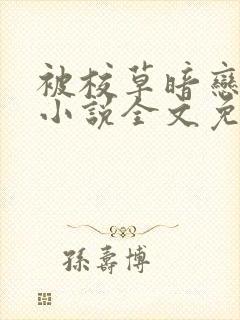 被校草暗戀
小說全文免
孫壽博